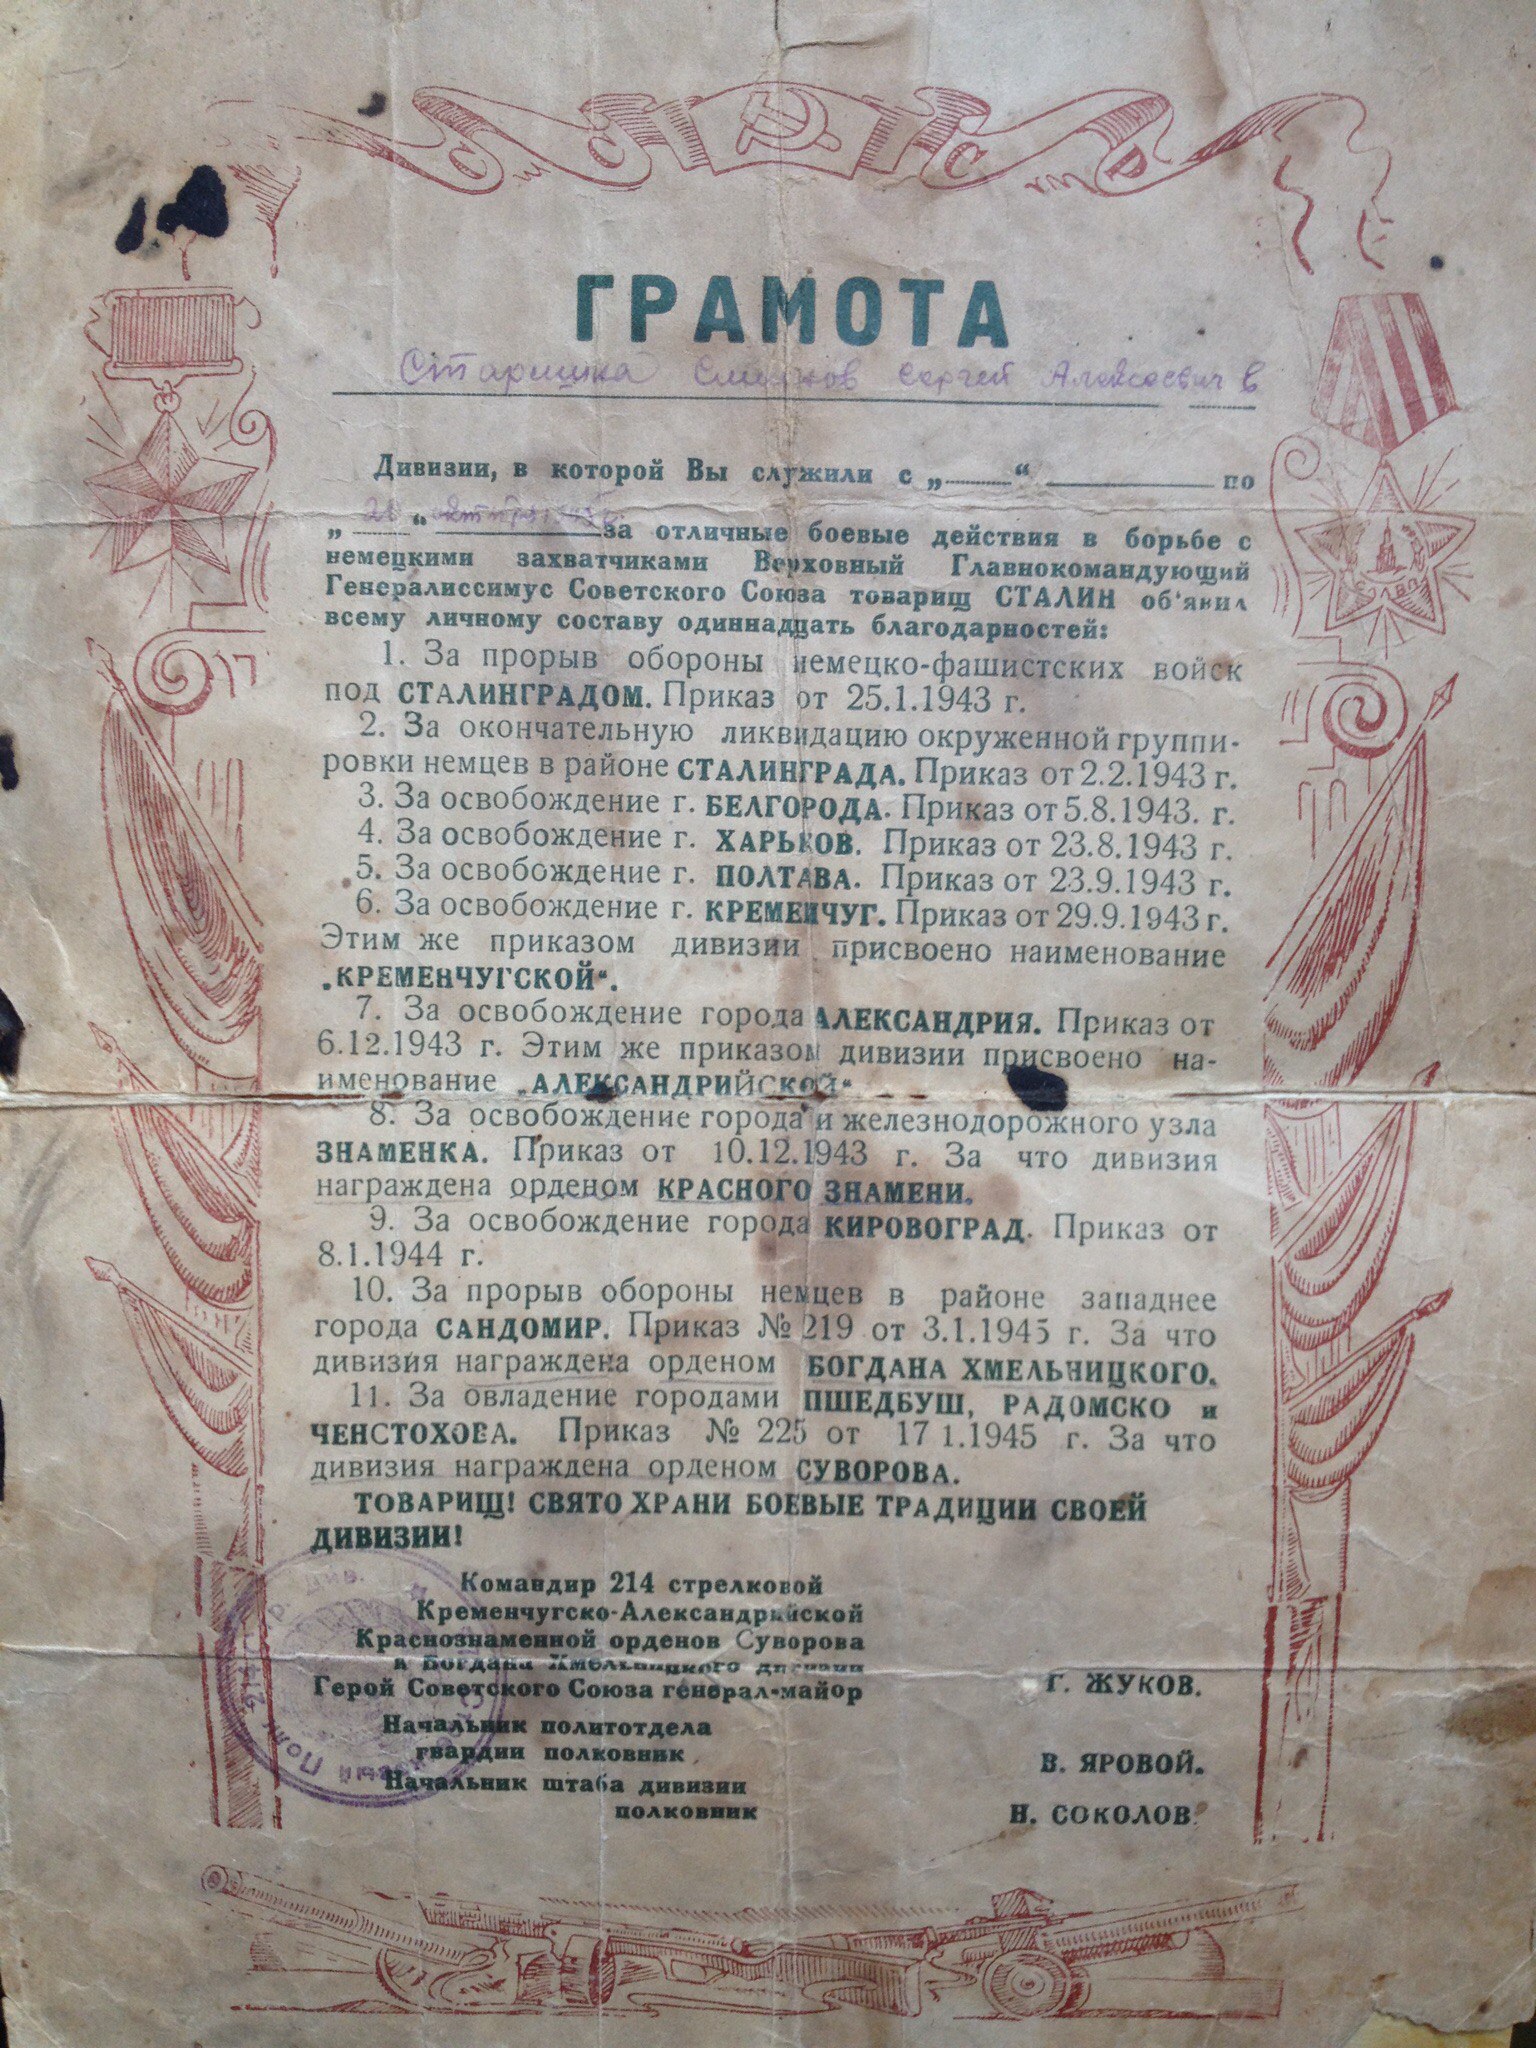 СССР
ГРАМОТА
Старшина Смирнов Сергей Алексеевич
Дивизии, в которой Вы служили с „ “ по
„ “ за отличные боевые действия в борьбе с
немецкими захватчиками Верховный Главнокомандующий
Генералиссимус Советского Союза товарищ СТАЛИН об'явил
всему личному составу одиннадцать благодарностей:
1. За прорыв обороны немецко-фашистских войск
под СТАЛИНГРАДОМ. Приказ от 25.1.1943 г.
2. За окончательную ликвидацию окруженной группи-
ровки немцев в районе СТАЛИНГРАДА. Приказ от 2.2.1943 г.
3. За освобождение г. БЕЛГОРОДА. Приказ от 5.8.1943. г.
4. За освобождение г. ХАРЬКОВ. Приказ от 23.8.1943 г.
5. За освобождение г. ПОЛТАВА. Приказ от 23.9.1943 г.
6. За освобождение г. КРЕМЕНЧУГ. Приказ от 29.9.1943 г.
Этим же приказом дивизии присвоено наименование
„КРЕМЕНЧУГСКОЙ“.
7. За освобождение города АЛЕКСАНДРИЯ. Приказ от
6.12.1943 г. Этим же приказом дивизии присвоено на-
именование „АЛЕКСАНДРИЙСКОЙ“
8. За освобождение города и железнодорожного узла
ЗНАМЕНКА. Приказ от 10.12.1943 г. За что дивизия
награждена орденом КРАСНОГО ЗНАМЕНИ.
9. За освобождение города КИРОВОГРАД. Приказ от
8.1.1944 г.
10. За прорыв обороны немцев в районе западнее
города САНДОМИР. Приказ № 219 от 3.1.1945 г. За что
дивизия награждена орденом БОГДАНА ХМЕЛЬНИЦКОГО.
11. За овладение городами ПШЕДБУШ, РАДОМСКО и
ЧЕНСТОХОВА. Приказ № 225 от 17 1.1945 г. За что
дивизия награждена орденом СУВОРОВА.
ТОВАРИЩ! СВЯТО ХРАНИ БОЕВЫЕ ТРАДИЦИИ СВОЕЙ
ДИВИЗИИ!
Командир 214 стрелковой
Кременчугско-Александрийской
Краснознаменной орденов Суворова
и Богдана Хмельницкого дивизии
Герой Советского Союза генерал-майор Г. ЖУКОВ.
Начальник политотдела
гвардии полковник В. ЯРОВОЙ.
Начальник штаба дивизии
полковник Н. СОКОЛОВ.